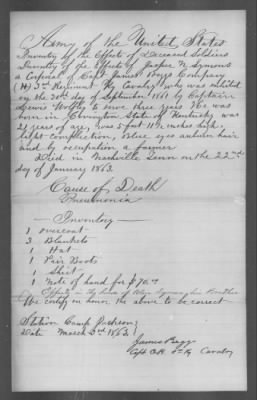 Army of the United States
Inventory of the Effects of Deceased Soldiers
Inventory of the Effects of Jasper N. Symons
a Corporal of Capt James Boggs Company
(H) 3d Regiment Ky Cavalry, who was enlisted
on the 30th day of September 1861 by Captain
Lewis to serve three years He was
born in Covington State of Kentucky was
21 years of age, was 5 foot 11½ inches high,
light complection, Blue eyes auburn hair
and by occupation a farmer
Died in Nashville Tenn on the 22nd
day of January 1863.
Cause of Death
Pneumonia
— Inventory —
1 overcoat
3 Blankets
1 Hat
1 Pair Boots
1 Shirt
1 Note of hand for $70.00
Effects in the hands of Symons his Brother
We certify on honor the above to be correct
Station Camp Jackson
Date March 3d 1863
James Boggs
Capt Co H 3d Ky Cavalry